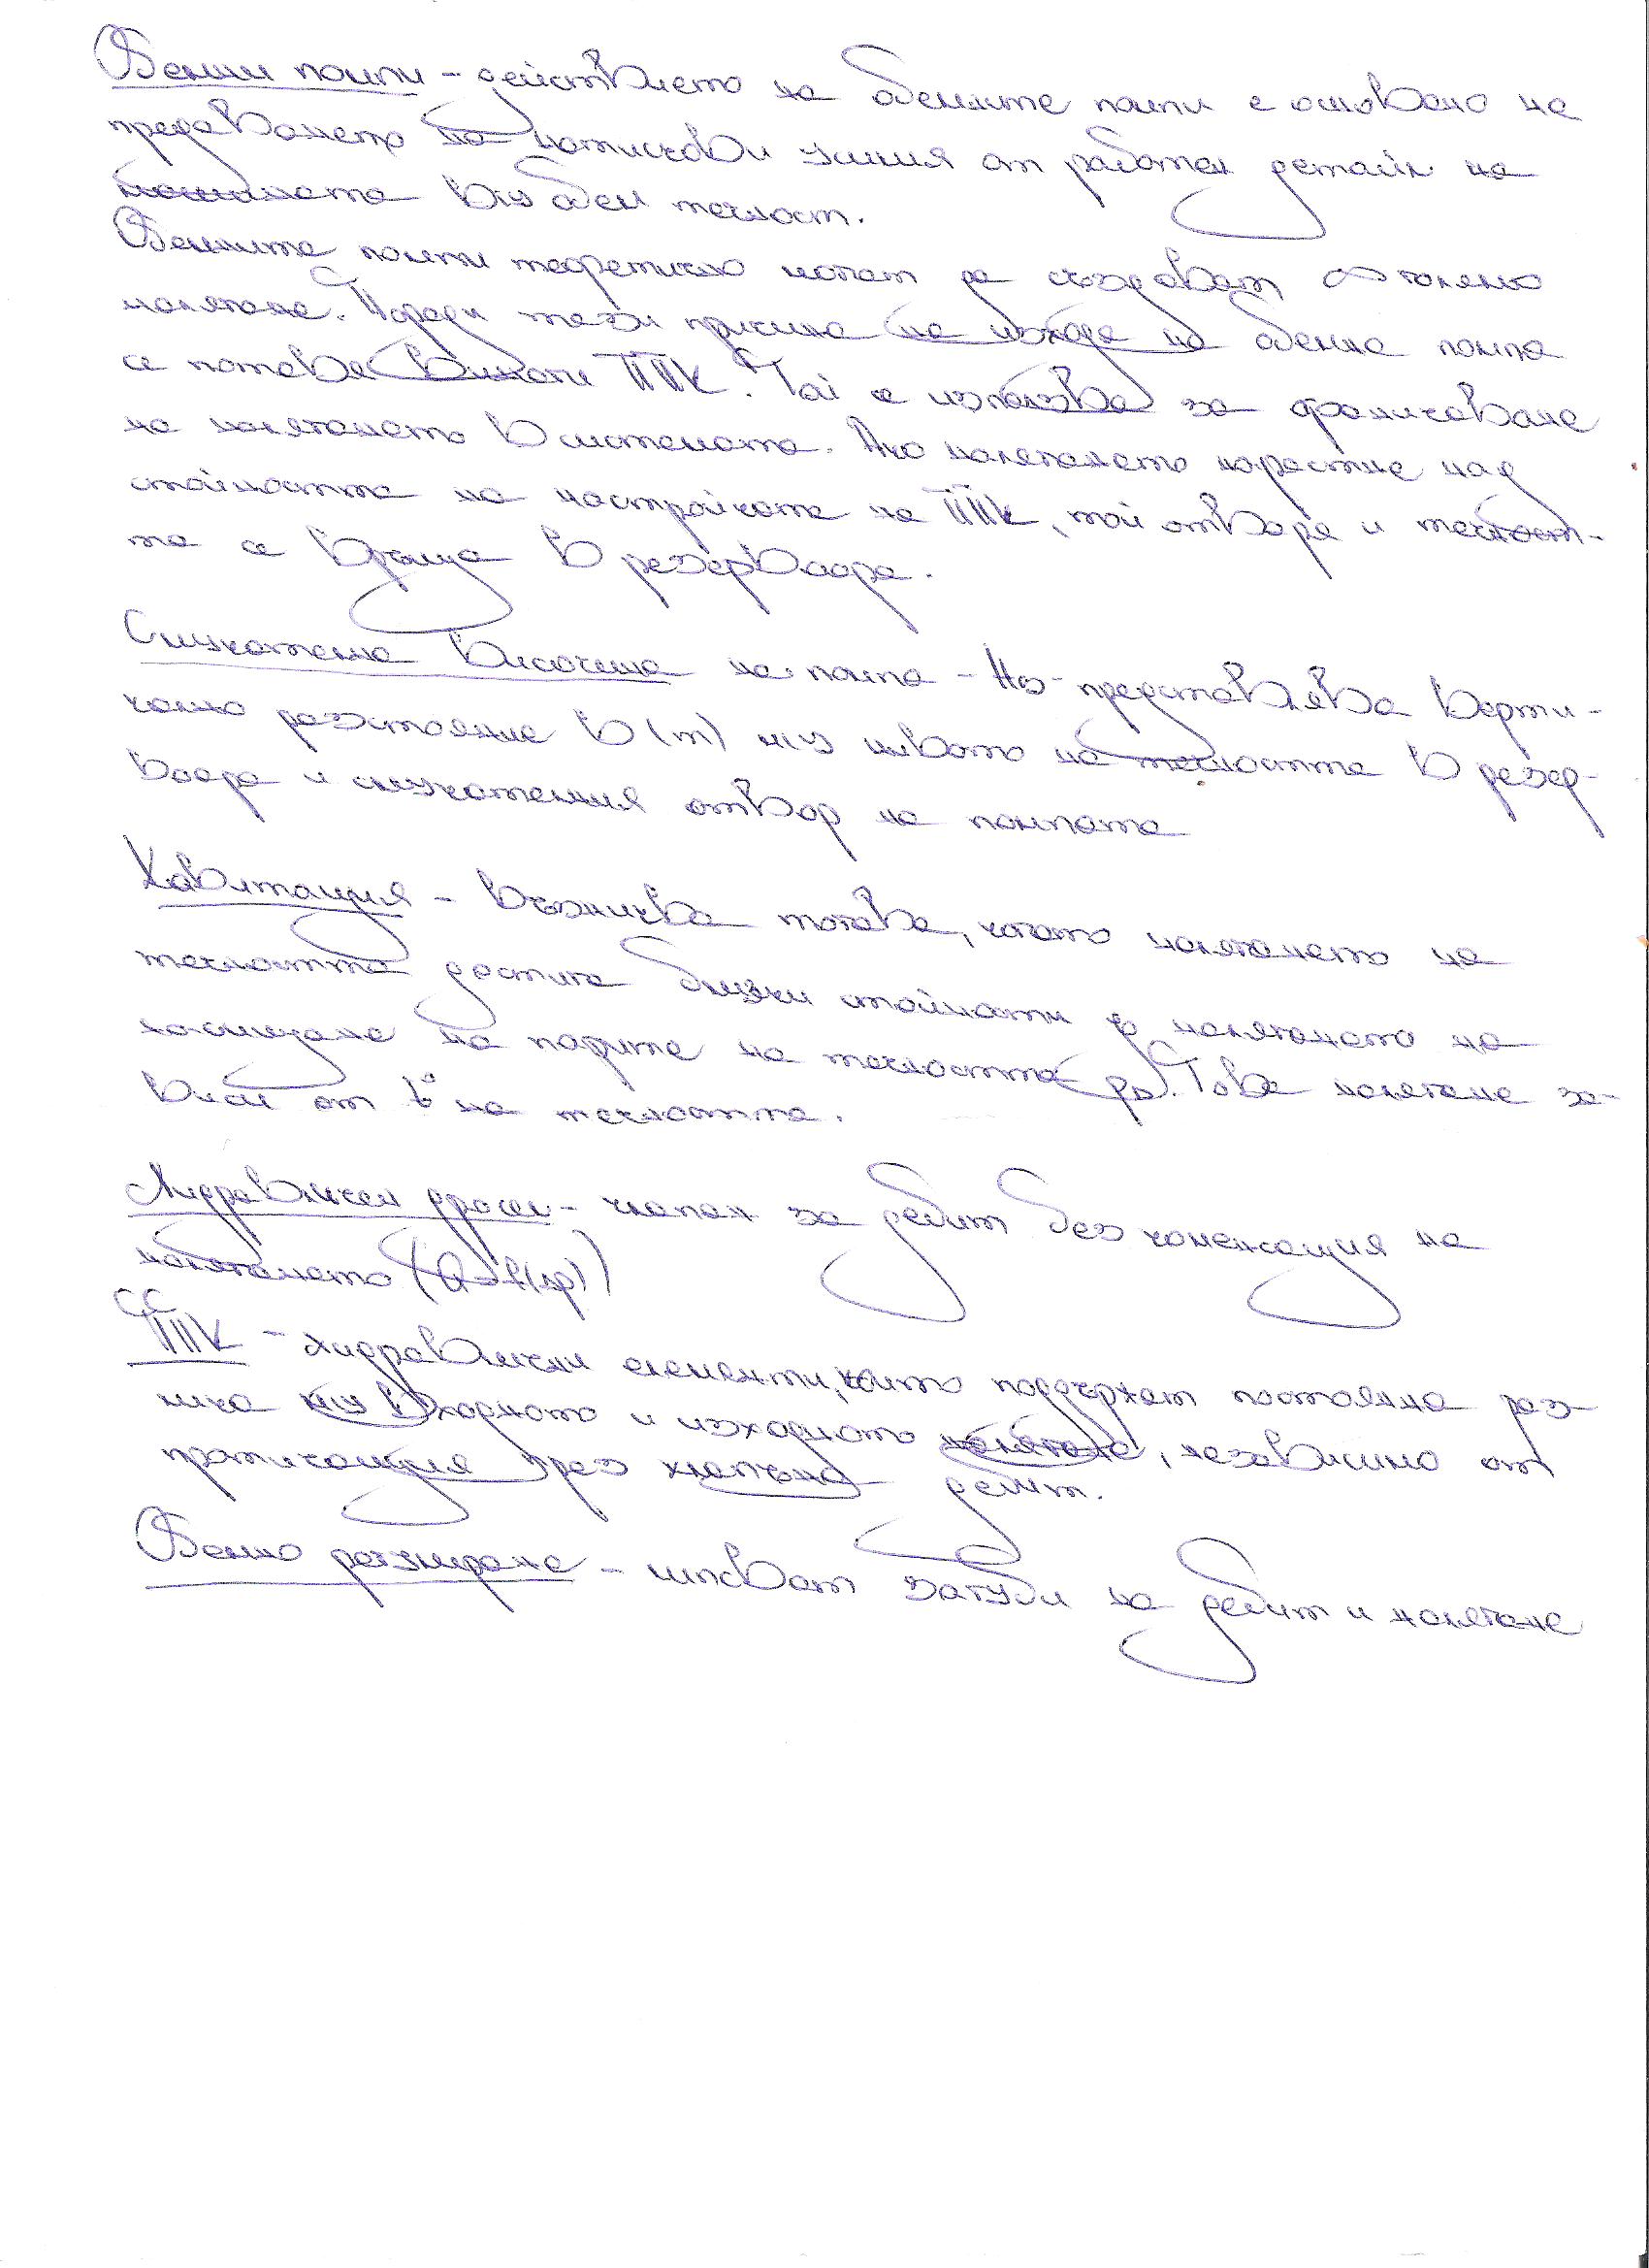 Обемни помпи - действието на обемните помпи е основано на
предаването на натискови усилия от работен детайл на
машината в/у обем течност.
Обемните помпи теоретично могат да създават ∞ голямо
налягане. Поради тази причина на изхода на обемна помпа
се поставя винаги ППК. Той се използва за ограничаване
на налягането в системата. Ако налягането нарастне над
стойността на настройката на ППК, той отваря и течност-
та се връща в резервоара.
Смукателна височина на помпа - Hs - представлява верти-
кално разстояние в (m) м/у нивото на течността в резер-
воара и смукателния отвор на помпата
Кавитация - възниква тогава, когато налягането на
течността достига близки стойности до налягането на
насищане на парите на течността - pп. Това налягане за-
виси от t° на течността.
Хидравличен дросел - клапан за дебит без компенсация на
налягането (Q=f(Δp))
ППК - хидравлични елементи, които поддържат постоянна раз-
лика м/у входното и изходното налягане, независимо от
протичащия през клапана дебит.
Обемно регулиране - липсват загуби на дебит и налягане